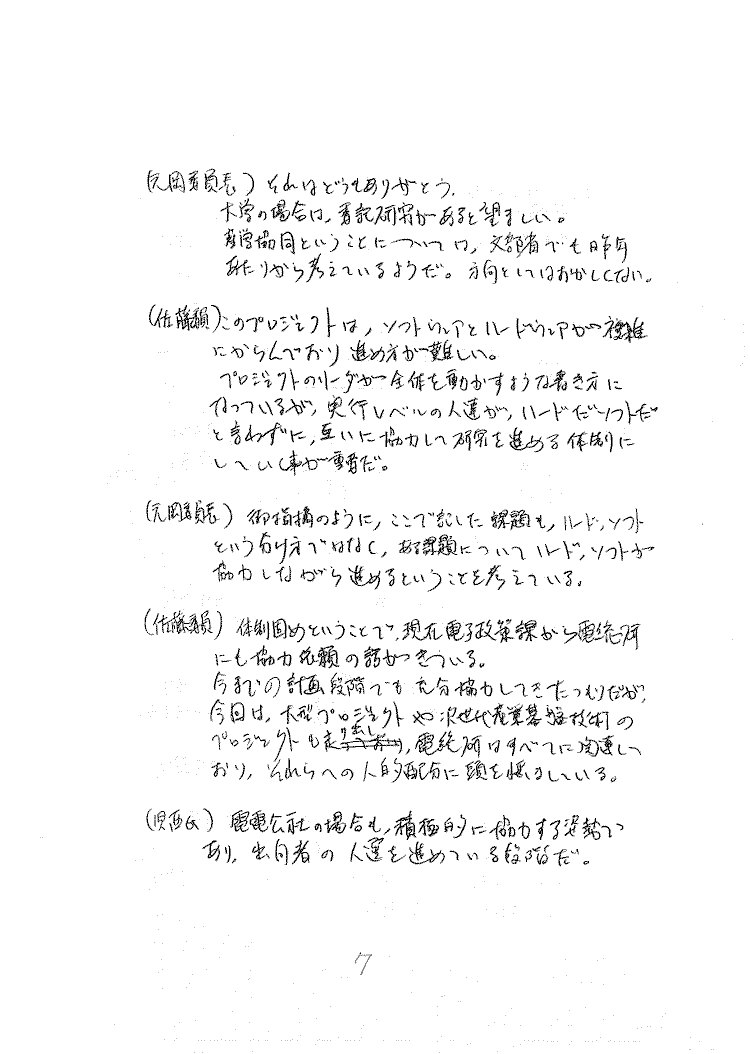 (元岡委員長) それはどうもありがとう.
大学の場合は, 委託研究があると望ましい。
産学協同ということについては, 文部省でも昨年
あたりから考えているようだ。方向としてはおかしくない。
(佐藤委員) このプロジェクトは, ソフトウェアとハードウェアが複雑
にからんでおり進め方が難しい。
プロジェクトのリーダが全体を動かすような書き方に
なっているが, 実行レベルの人達が, ハードだソフトだ
と言わずに, 互いに協力して研究を進める体制に
していく事が重要だ。
(元岡委員長) 御指摘のように, ここで記した課題も, ハード, ソフト
という分け方ではなく, ある課題についてハード, ソフトが
協力しながら進めるということを考えている。
(佐藤委員) 体制固めということで, 現在電子政策課から電総研
にも協力依頼の話がきている。
今までの計画段階でも充分協力してきたつもりだが,
今回は, 大型プロジェクトや次世代産業基盤技術の
プロジェクトも走り出し, 電総研はすべてに関連して
おり, それらへの人的配分に頭を悩ましている。
電電公社の場合も, 積極的に協力する姿勢で
あり, 出向者の人選を進めている段階だ。
7